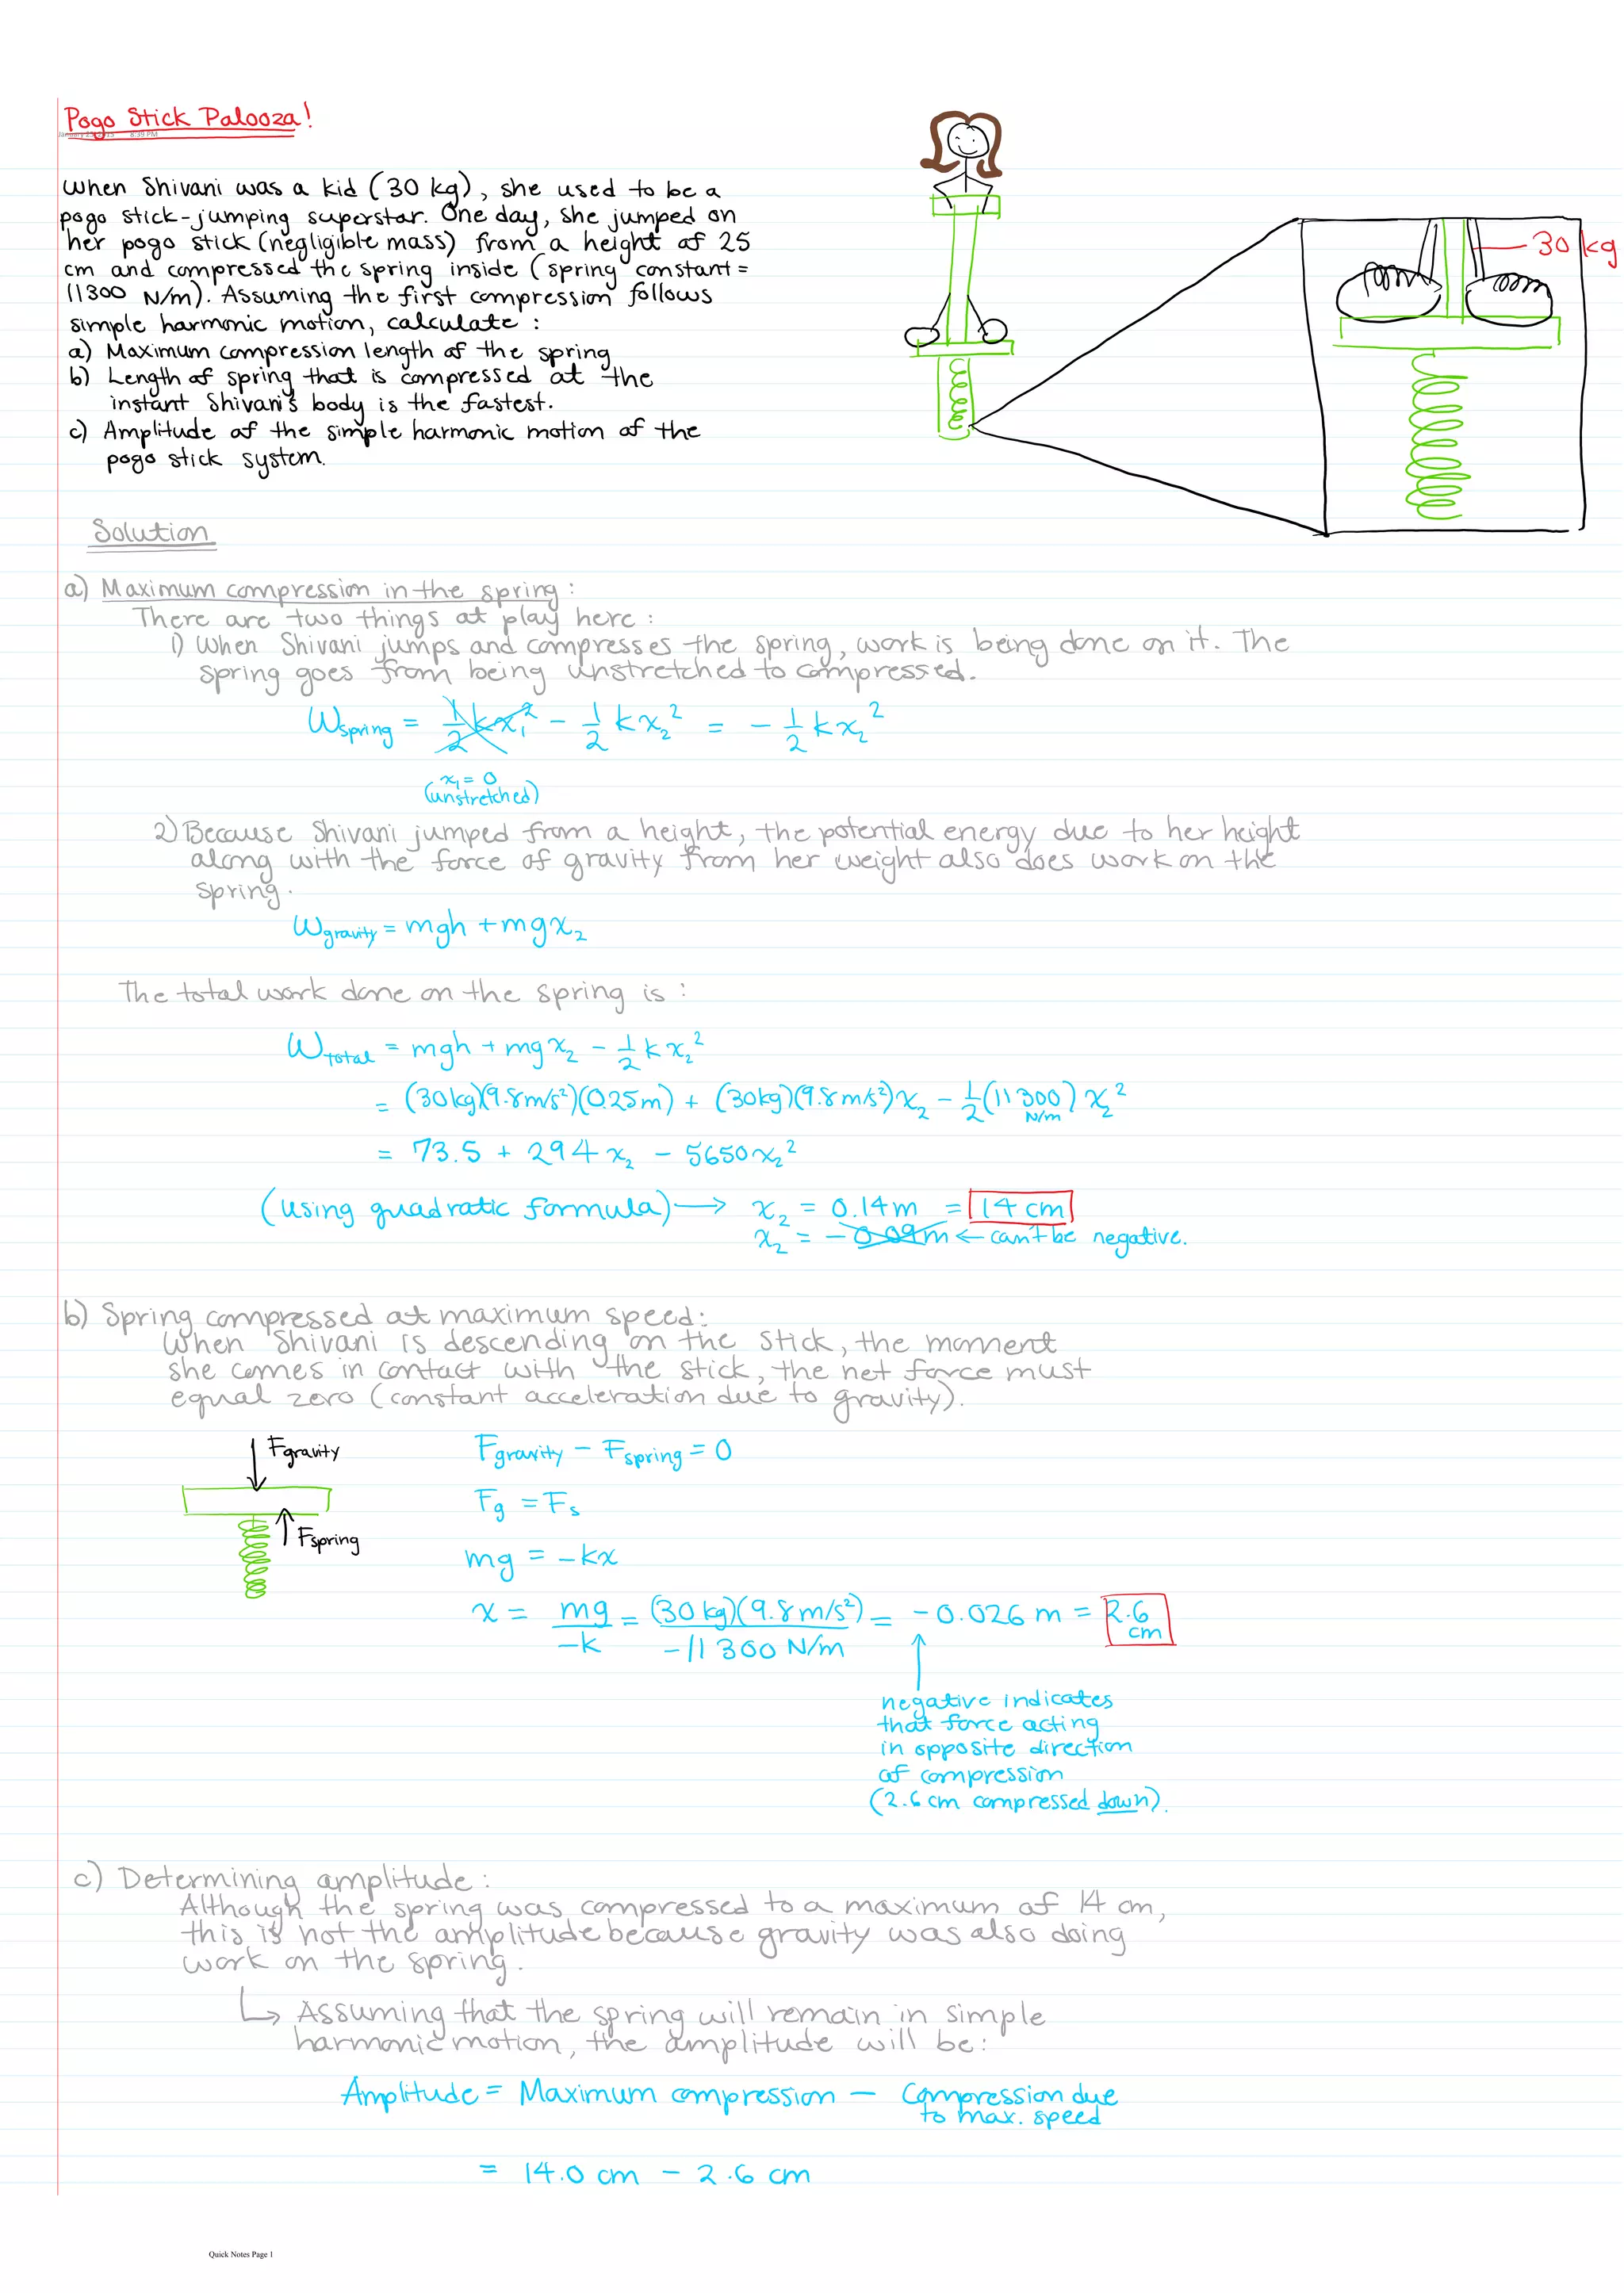 Pogo Stick Palooza!
8:39 PM
When Shivani was a kid (30 kg), she used to be a
pogo stick-jumping superstar. One day, she jumped on
her pogo stick (negligible mass) from a height of 25
cm and compressed the spring inside (spring constant =
11300 N/m). Assuming the first compression follows
simple harmonic motion, calculate :
a) Maximum compression length of the spring
b) Length of spring that is compressed at the
instant Shivani's body is the fastest.
c) Amplitude of the simple harmonic motion of the
pogo stick system.
30 kg
Solution
a) Maximum compression in the spring :
There are two things at play here :
1) When Shivani jumps and compresses the spring, work is being done on it. The
spring goes from being unstretched to compressed.
Wspring = 1/2 kx₁² - 1/2 kx₂² = - 1/2 kx₂²
x₁ = 0
(unstretched)
2) Because Shivani jumped from a height, the potential energy due to her height
along with the force of gravity from her weight also does work on the
spring.
Wgravity = mgh + mgx₂
The total work done on the spring is :
Wtotal = mgh + mgx₂ - 1/2 kx₂²
= (30kg)(9.8m/s²)(0.25m) + (30kg)(9.8m/s²)x₂ - 1/2 (11300 N/m) x₂²
= 73.5 + 294x₂ - 5650x₂²
(using quadratic formula) → x₂ = 0.14m = 14 cm
x₂ = -0.09m ← can't be negative.
b) Spring compressed at maximum speed:
When Shivani is descending on the stick, the moment
she comes in contact with the stick, the net force must
equal zero (constant acceleration due to gravity).
Fgravity
Fspring
Fgravity - Fspring = 0
Fg = Fs
mg = -kx
x = mg/-k = (30kg)(9.8m/s²)/-11300 N/m = -0.026 m = 2.6 cm
negative indicates
that force acting
in opposite direction
of compression
(2.6 cm compressed down).
c) Determining amplitude :
Although the spring was compressed to a maximum of 14 cm,
this is not the amplitude because gravity was also doing
work on the spring.
↳ Assuming that the spring will remain in simple
harmonic motion, the amplitude will be:
Amplitude = Maximum compression - Compression due
to max. speed
= 14.0 cm - 2.6 cm
Quick Notes Page 1